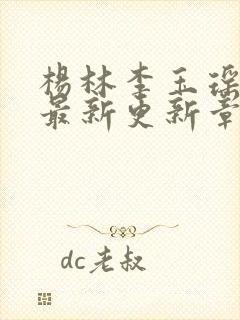 杨林李玉瑶
最新更新章
dc老叔